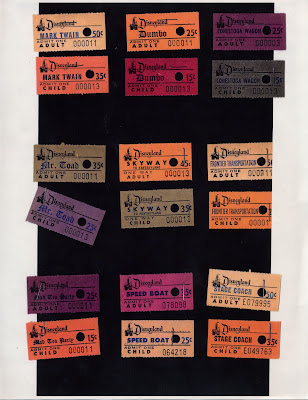 Disneyland
MARK TWAIN 50¢
ADMIT ONE
ADULT 000011
Disneyland
Dumbo 25¢
ADMIT ONE
ADULT 000011
Disneyland
CONESTOGA WAGON 25¢
ADMIT ONE
ADULT
Disneyland
MARK TWAIN 35¢
ADMIT ONE
CHILD 000013
Disneyland
Dumbo 15¢
ADMIT ONE
CHILD 000013
Disneyland
CONESTOGA WAGON
ADMIT ONE
CHILD 000013
Disneyland
Mr. Toad 35¢
ADMIT ONE
ADULT 000011
Disneyland
SKYWAY 45¢
ADMIT ONE
ONE WAY
ADULT 000011
Disneyland
FRONTIER TRANSPORTATION
ADMIT ONE
ADULT
Disneyland
Mr. Toad 25¢
ADMIT ONE
CHILD 000013
Disneyland
SKYWAY
ADMIT ONE
ONE WAY
CHILD 000013
Disneyland
FRONTIER TRANSPORTATION
ADMIT ONE
CHILD
Disneyland
Mad Tea Party 25¢
ADMIT ONE
ADULT 000013
Disneyland
SPEED BOAT
ADMIT ONE
ADULT 078098
Disneyland
STAGE COACH
ADMIT ONE
ADULT
Disneyland
Mad Tea Party 15¢
ADMIT ONE
CHILD 000011
Disneyland
SPEED BOAT 25¢
ADMIT ONE
CHILD 064218
Disneyland
STAGE COACH 35¢
ADMIT ONE
CHILD E049763